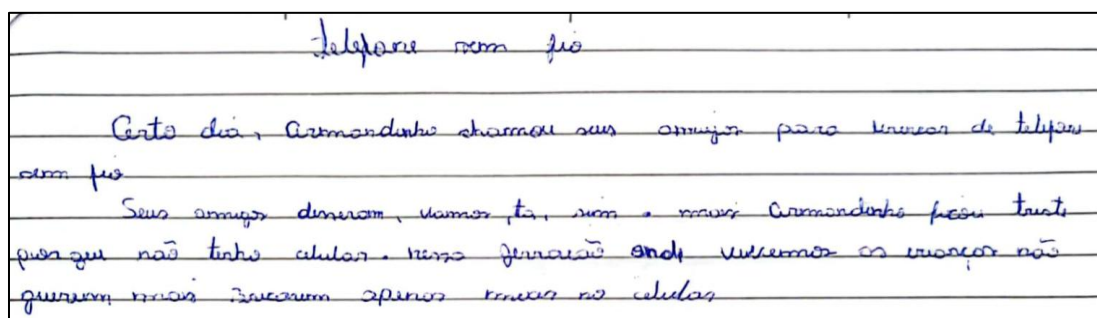 telefone sem fio
Certo dia, Armandinho chamou seus amigos para brincar de telefone
sem fio
Seus amigos diseram, vamos, ta, sim. mais Armandinho ficou triste
porque não tinha celular. nessa gerração onde vivemos as crianças não
querem mais brincarem apenas no celular